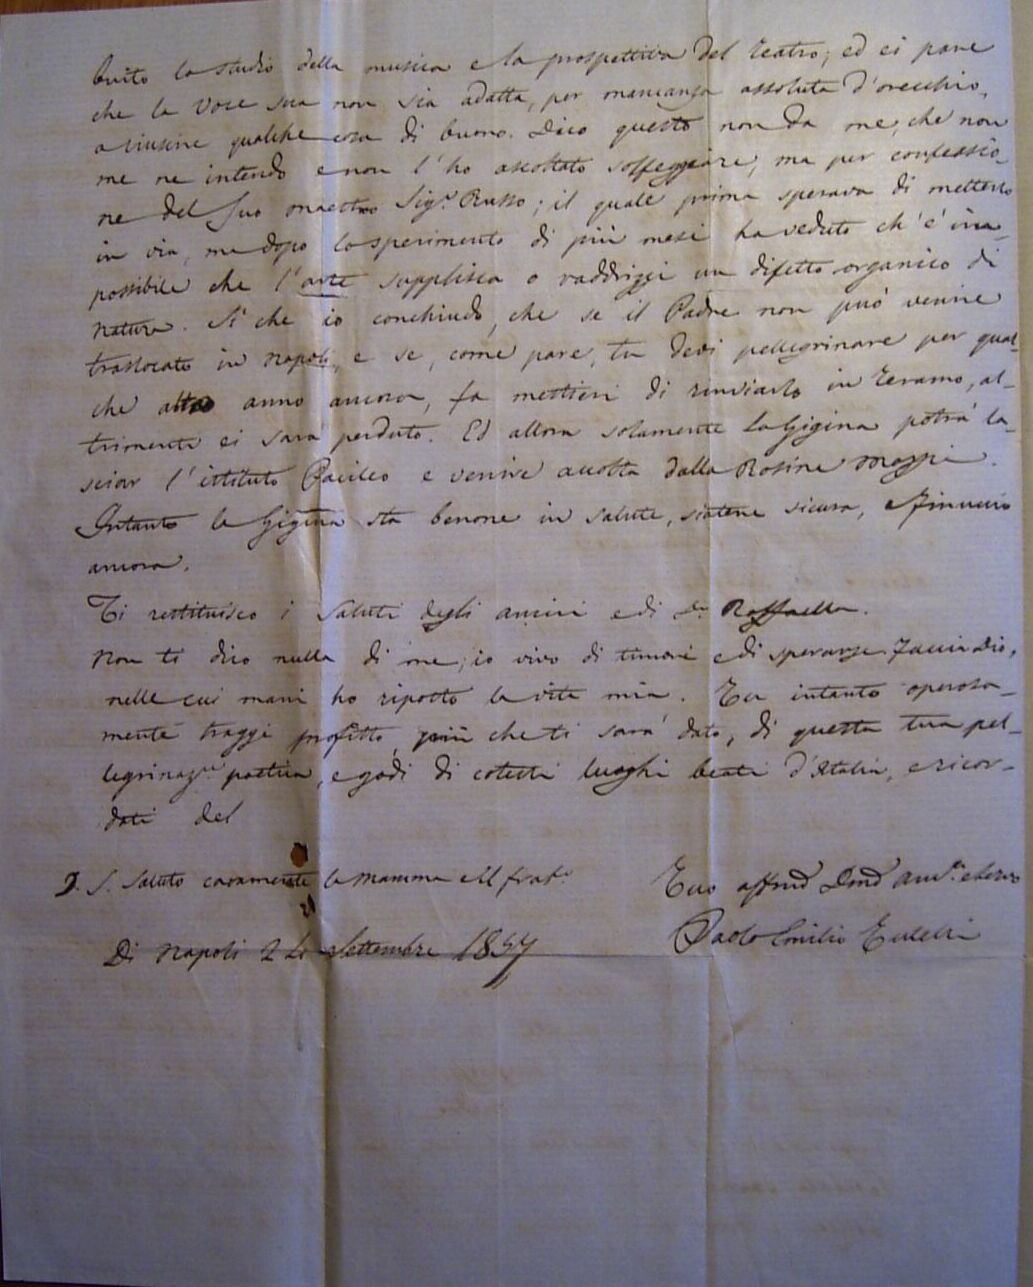 buito lo studio della musica e la prospettiva del teatro; ed ei pare
che la voce sua non sia adatta, per mancanza assoluta d'orecchio,
a riuscire qualche cosa di buono. Dico questo non da me, che non
me ne intendo e non l'ho ascoltato solfeggiare, ma per confessio_
ne del suo maestro Sig.r Russo; il quale prima sperava di metterlo
in via, ma dopo lo sperimento di più mesi ha veduto ch'è im_
possibile che l'arte supplisca o raddrizzi un difetto organico di
natura. Sì che io conchiudo, che se il Padre non può venire
traslocato in Napoli, e se, come pare, tu devi pellegrinare per qual_
che altro anno ancora, fa mestieri di rinviarlo in Teramo, al_
trimenti ei sarà perduto. Ed allora solamente la Gigina potrà la_
sciar l'istituto e venire accolta dalla Rosina
Intanto la Gigina sta benone in salute, statene sicura, e
ancora.
Ti restituisco i saluti degli amici e di D.a Raffaella.
Non ti dico nulla di me; io vivo di timori e di speranze. Faccia Dio,
nelle cui mani ho riposto la vita mia. Tu intanto operosa_
mente traggi profitto, più che ti sarà dato, di questa tua pel_
legrinaz.ne, e godi di cotesti luoghi beati d'Italia, e ricor_
dati del
P. S. Saluto caramente la Mamma e il frat.o
Tuo
Paolo Emilio
Di Napoli 2 Settembre